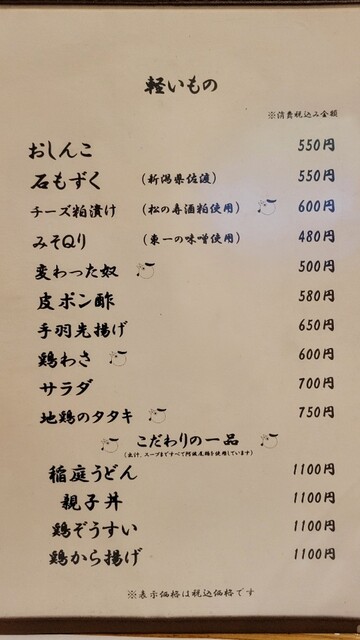 軽いもの
※消費税込み金額
おしんこ 550円
石もずく (新潟県佐渡) 550円
チーズ粕漬け (松の寿酒粕使用) 600円
みそQり (東一の味噌使用) 480円
変わった奴 500円
皮ポン酢 580円
手羽先揚げ 650円
鶏わさ 600円
サラダ 700円
地鶏のタタキ 750円
こだわりの一品
(出汁、スープまですべて阿波尾鶏を使用しています)
稲庭うどん 1100円
親子丼 1100円
鶏ぞうすい 1100円
鶏から揚げ 1100円
※表示価格は税込価格です